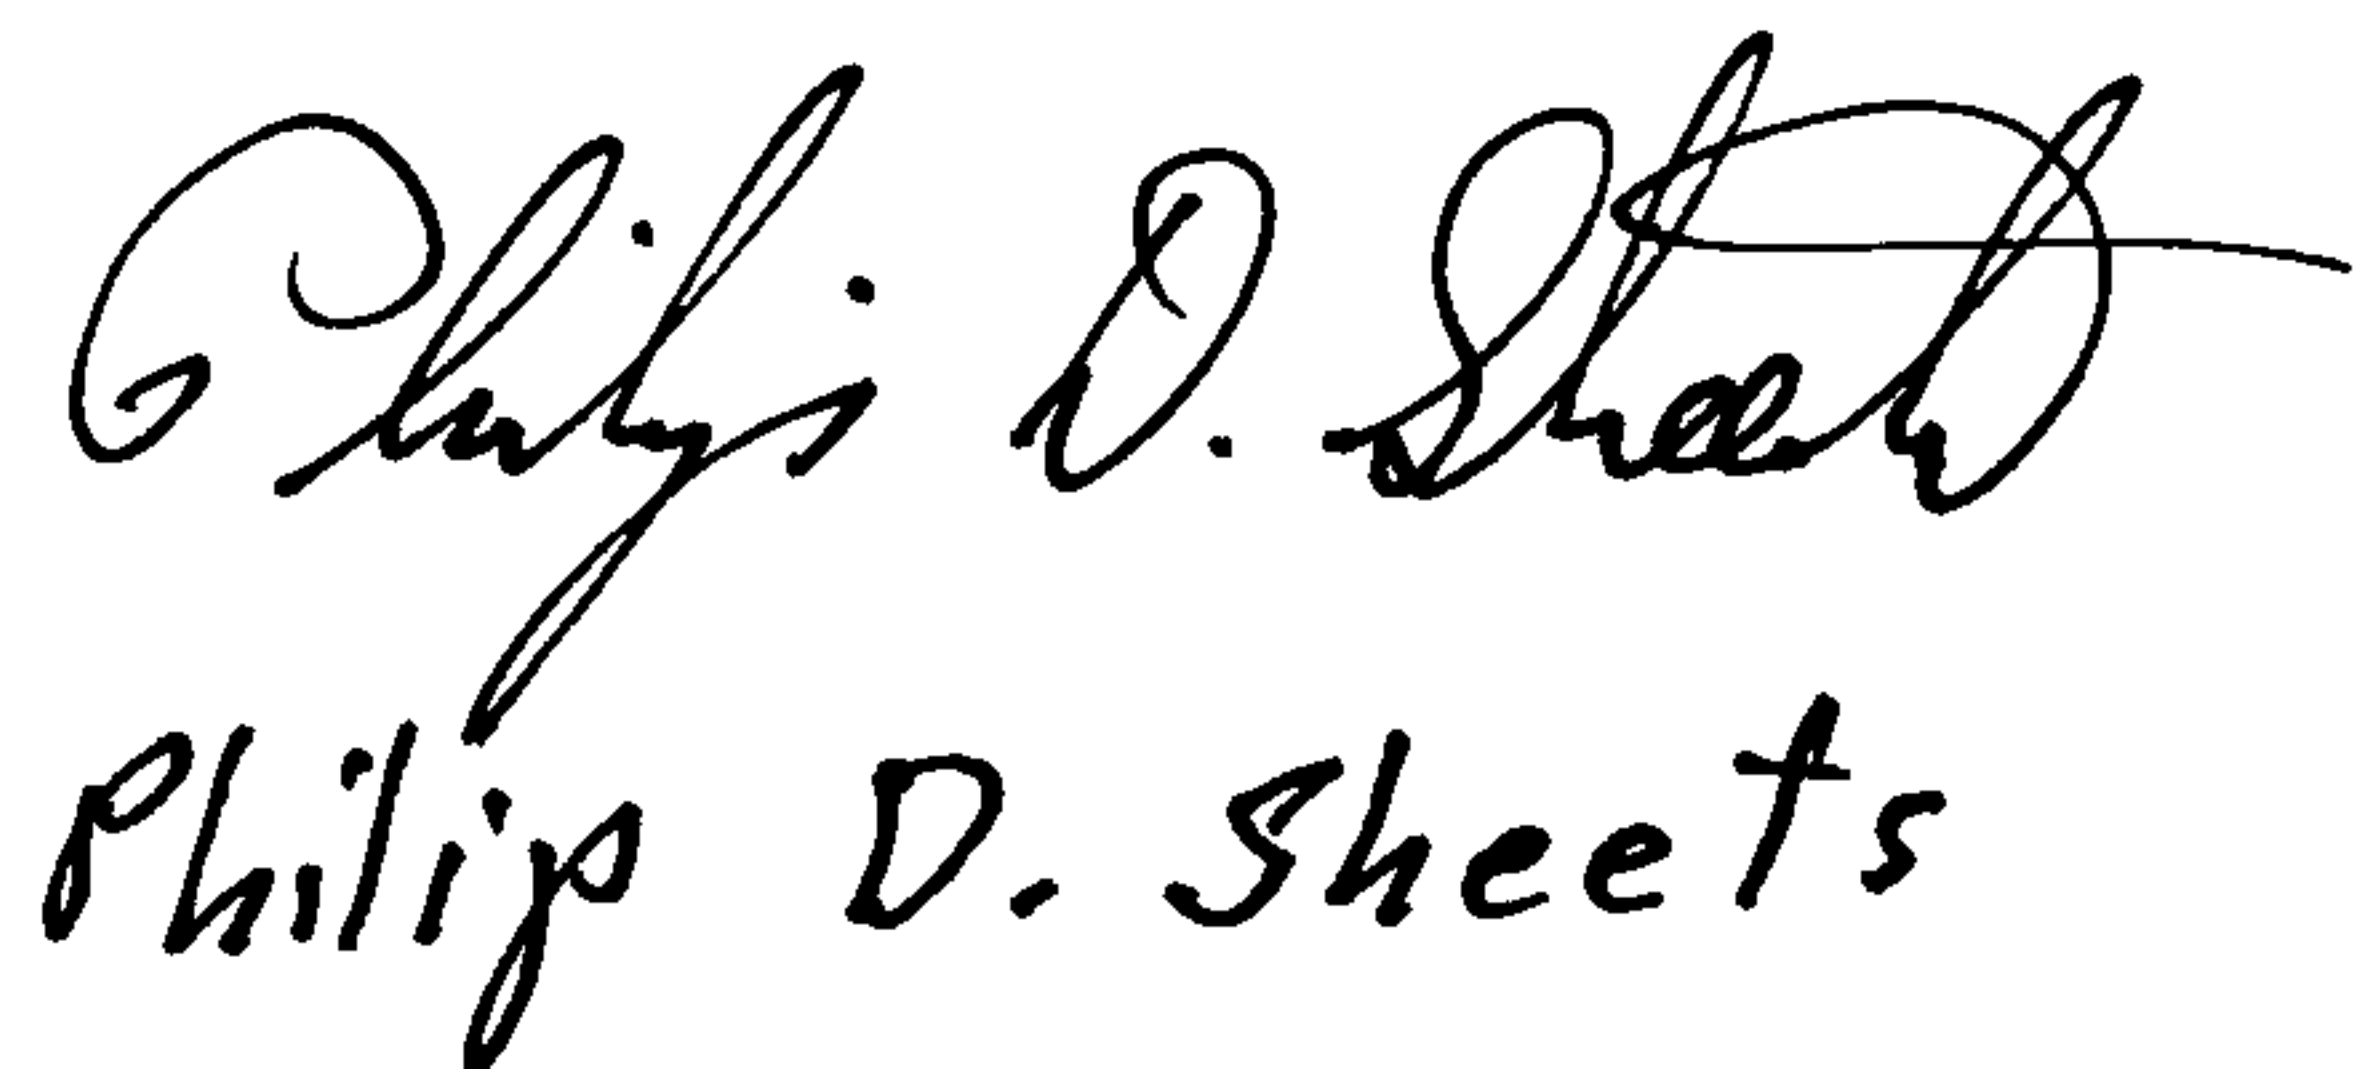 Philip D. Sheets
Philip D. Sheets